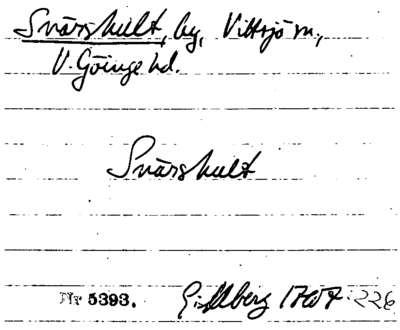 Svärshult, by, Vittsjö sn,
V. Göinge hd.
Svärshult
Nr 5393. Gillberg 1767: 226